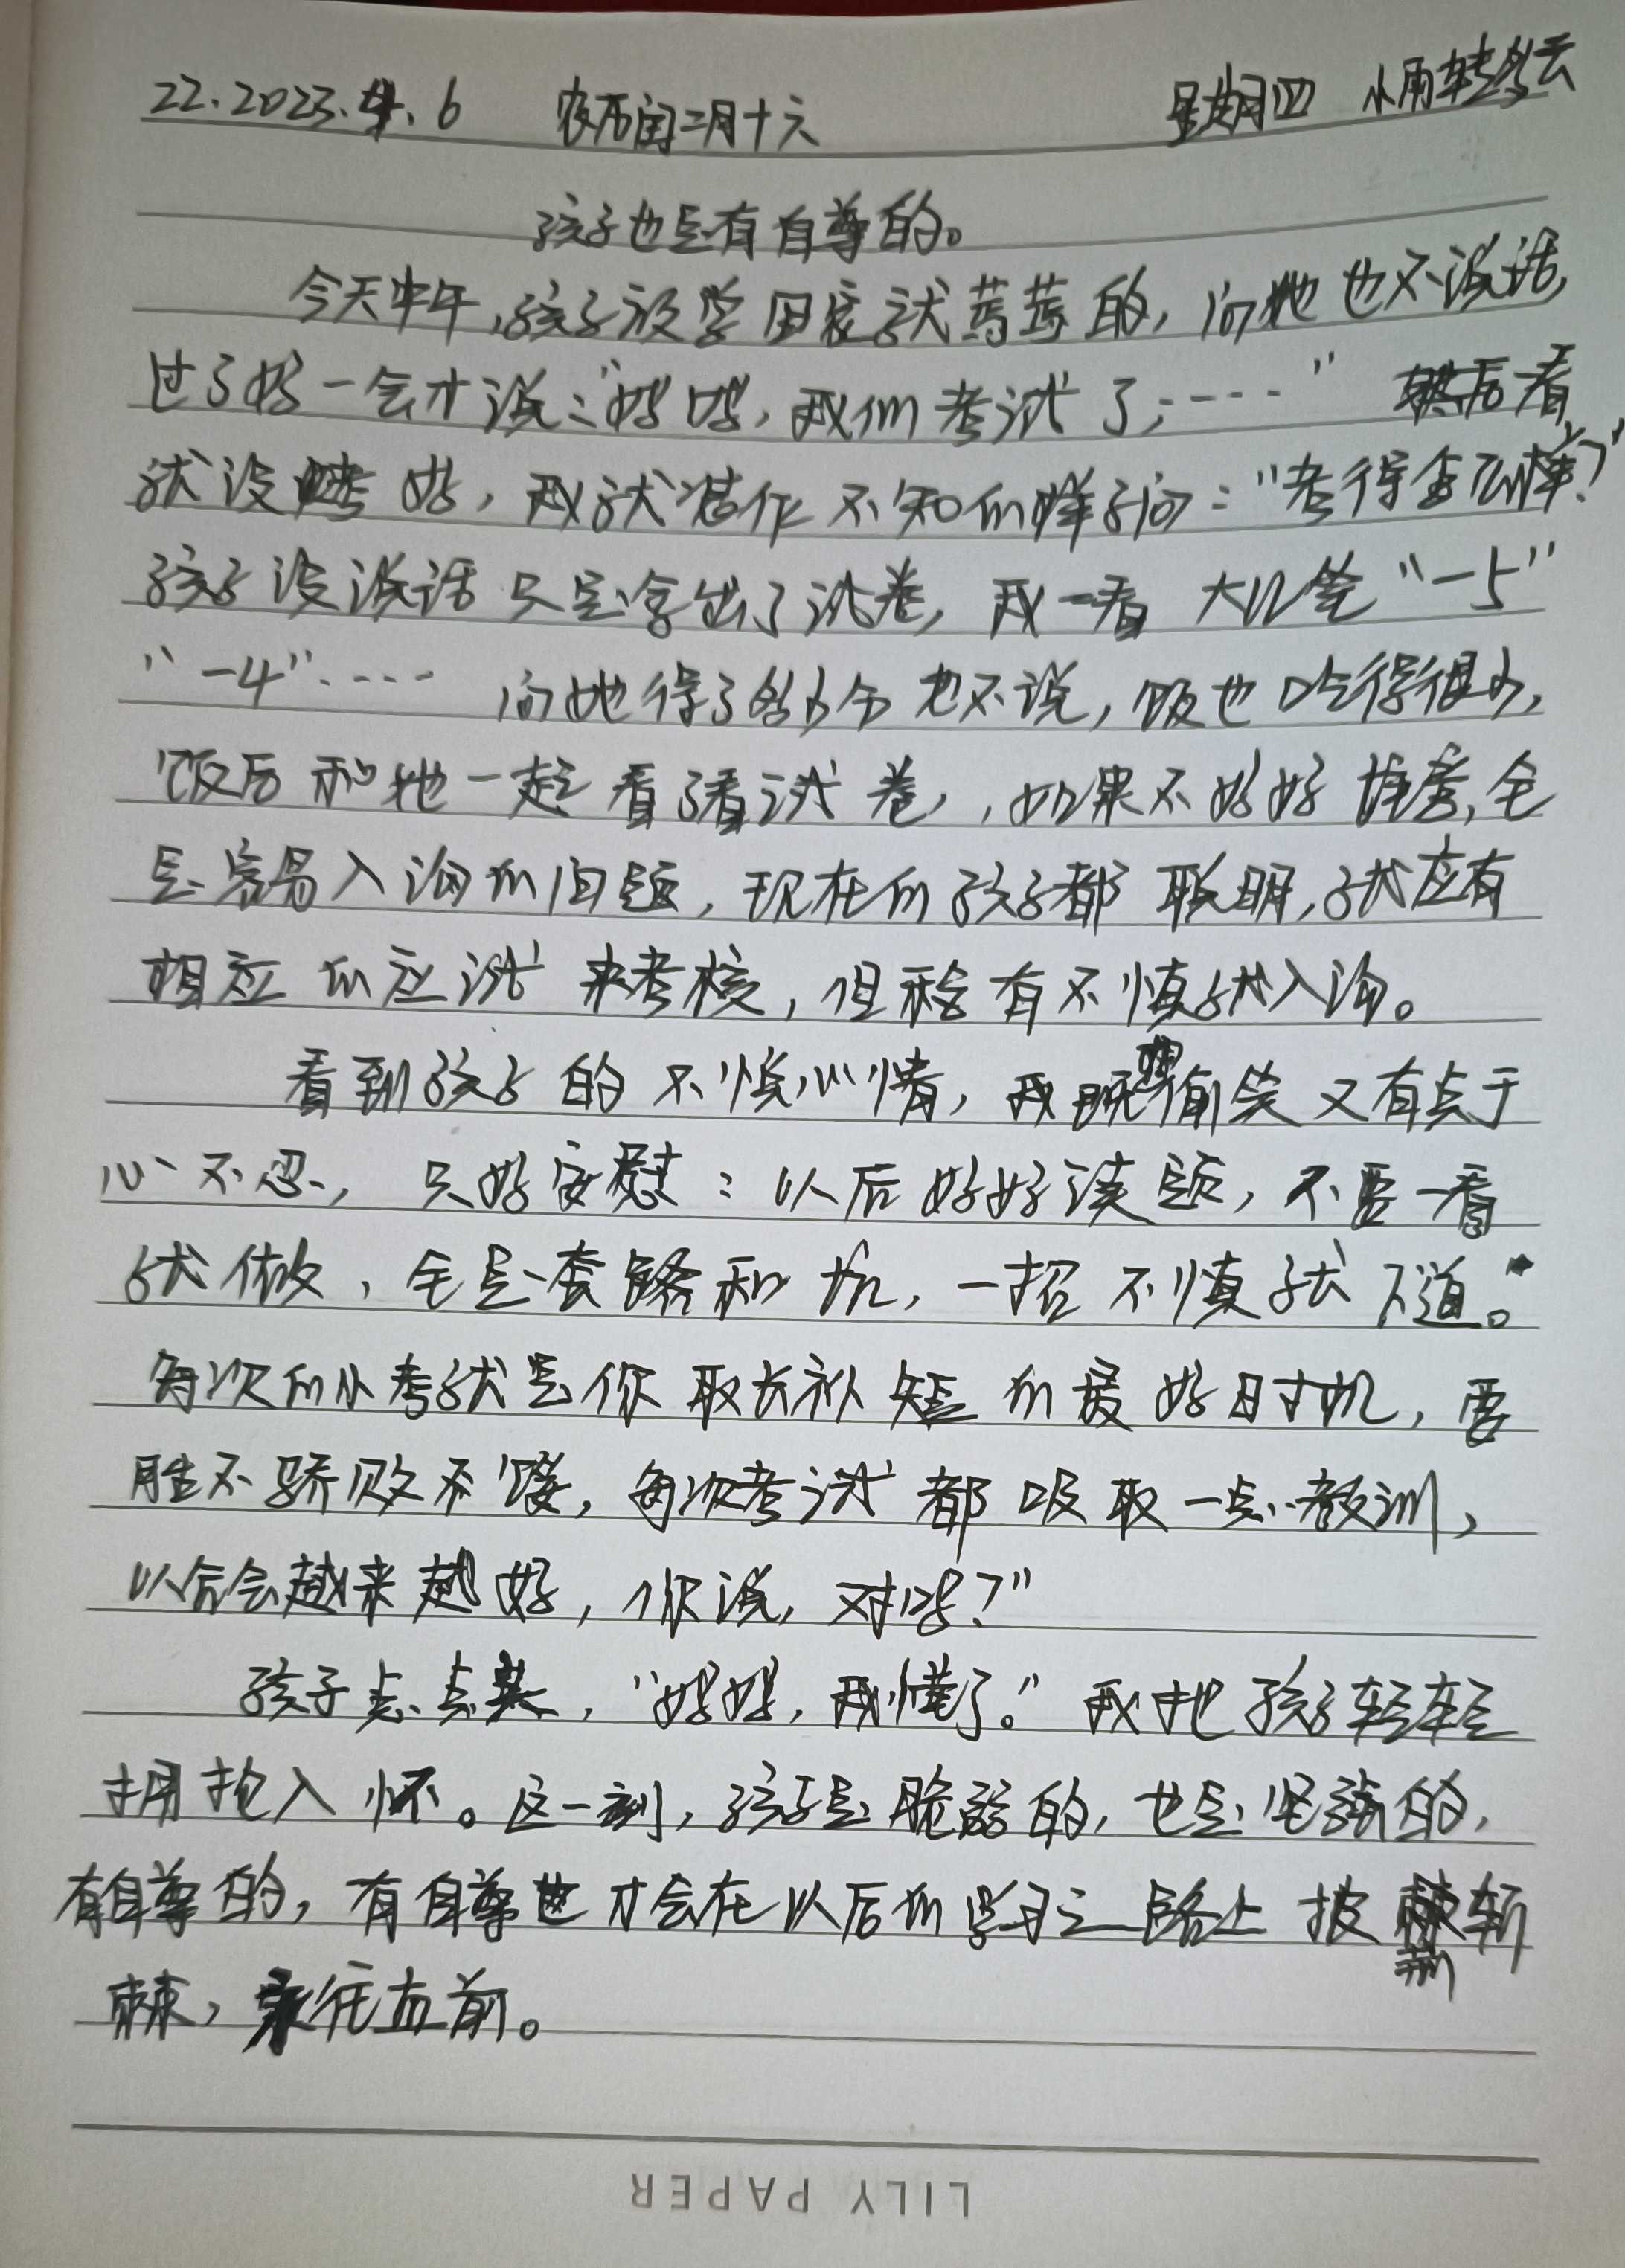 22.2023.4.6 农历闰二月十六 星期四 小雨转多云
孩子也是有自尊的。
今天中午,孩子放学回家就蔫蔫的,问她也不说话,
过了好一会才说:“妈妈,我们考试了,……” 然后看
就没考好,我就装作不知的样子问:“考得怎么样?”
孩子没说话只是拿出了试卷,我一看 大红笔“-5”
“-4”…… 问她得了多少分也不说,饭也吃得很少,
饭后和她一起看了看试卷,,如果不好好推敲,全
是容易入沟的旧题,现在的孩子都聪明,就应有
相应的应试来考核,但稍有不慎就入沟。
看到孩子的不悦心情,我既想偷笑又有点于
心不忍,只好安慰:以后好好读题,不要一看
就做,全是套路和坑,一招不慎就下道。”
每次的小考就是你取长补短的最好时机,要
胜不骄败不馁,每次考试都吸取一点教训,
以后会越来越好,你说,对吗?”
孩子点点头,“妈妈,我懂了。”我把孩子轻轻
拥抱入怀。这一刻,孩子是脆弱的,也是坚强的,
有自尊的,有自尊也才会在以后的学习之路上披荆斩
棘,勇往直前。
LILY PAPER